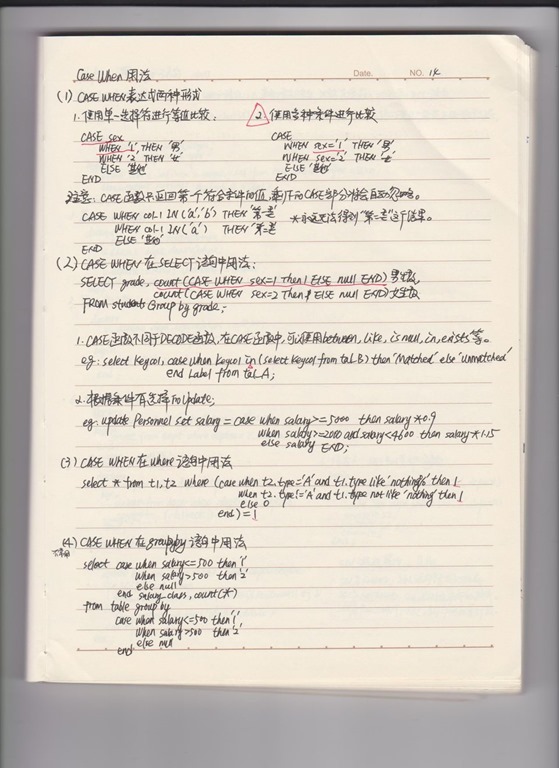 Case When 用法
Date. NO. 14
(1) CASE WHEN 表达式两种形式
1. 使用单一选择符进行等值比较: 2. 使用多种条件进行比较
CASE sex CASE
WHEN '1' THEN '男' WHEN sex='1' THEN '男'
WHEN '2' THEN '女' WHEN sex='2' THEN '女'
ELSE '其他' ELSE '其他'
END END
注意: CASE函数只返回第一个符合条件的值,剩下的CASE部分将会自动忽略。
CASE WHEN col-1 IN ('a','b') THEN '第一类' *永远无法得到"第二类"这个结果。
WHEN col-1 IN ('a') THEN '第二类'
ELSE '其他'
END
(2) CASE WHEN 在SELECT 语句中用法:
SELECT grade, count(CASE WHEN sex=1 Then 1 ELSE null END) 男生数,
count(CASE WHEN sex=2 Then 1 ELSE null END) 女生数
FROM student Group by grade;
1. CASE函数不同于DECODE函数,在CASE函数中,可以使用between, like, is null, in, exists等。
eg: select keycol, case when keycol in (select keycol from tal_B) then 'Matched' else 'unmatched'
end Label from tal_A;
2. 根据条件有选择的update;
eg: update Personnel set salary = case when salary>=5000 then salary*0.9
when salary>=2000 and salary<4600 then salary*1.15
else salary END;
(3) CASE WHEN 在where 语句中用法
select * from t1, t2 where (case when t2.type='A' and t1.type like 'nothing%' then 1
when t2.type!='A' and t1.type not like 'nothing' then 1
else 0
end) = 1
(4) CASE WHEN 在group by 语句中用法
select case when salary<=500 then '1'
when salary>500 then '2'
else null
end salary_class, count(*)
from table group by
case when salary<=500 then '1'
when salary>500 then '2'
else null
end